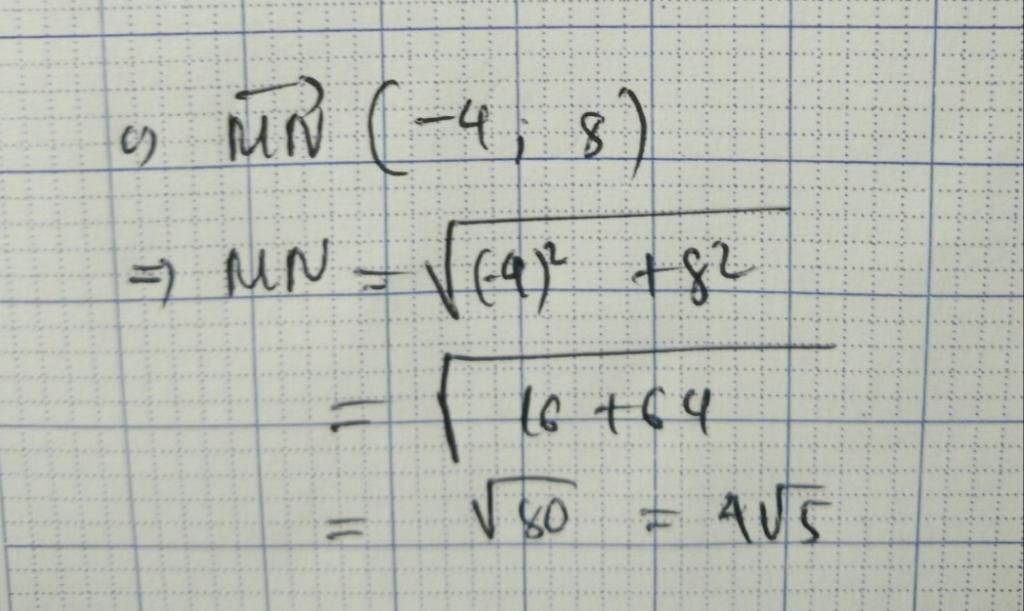 ⇒ $\overrightarrow{MN}$ (-4 ; 8)
⇒ MN = $\sqrt{(-4)^2 + 8^2}$
= $\sqrt{16 + 64}$
= $\sqrt{80}$ = 4$\sqrt{5}$